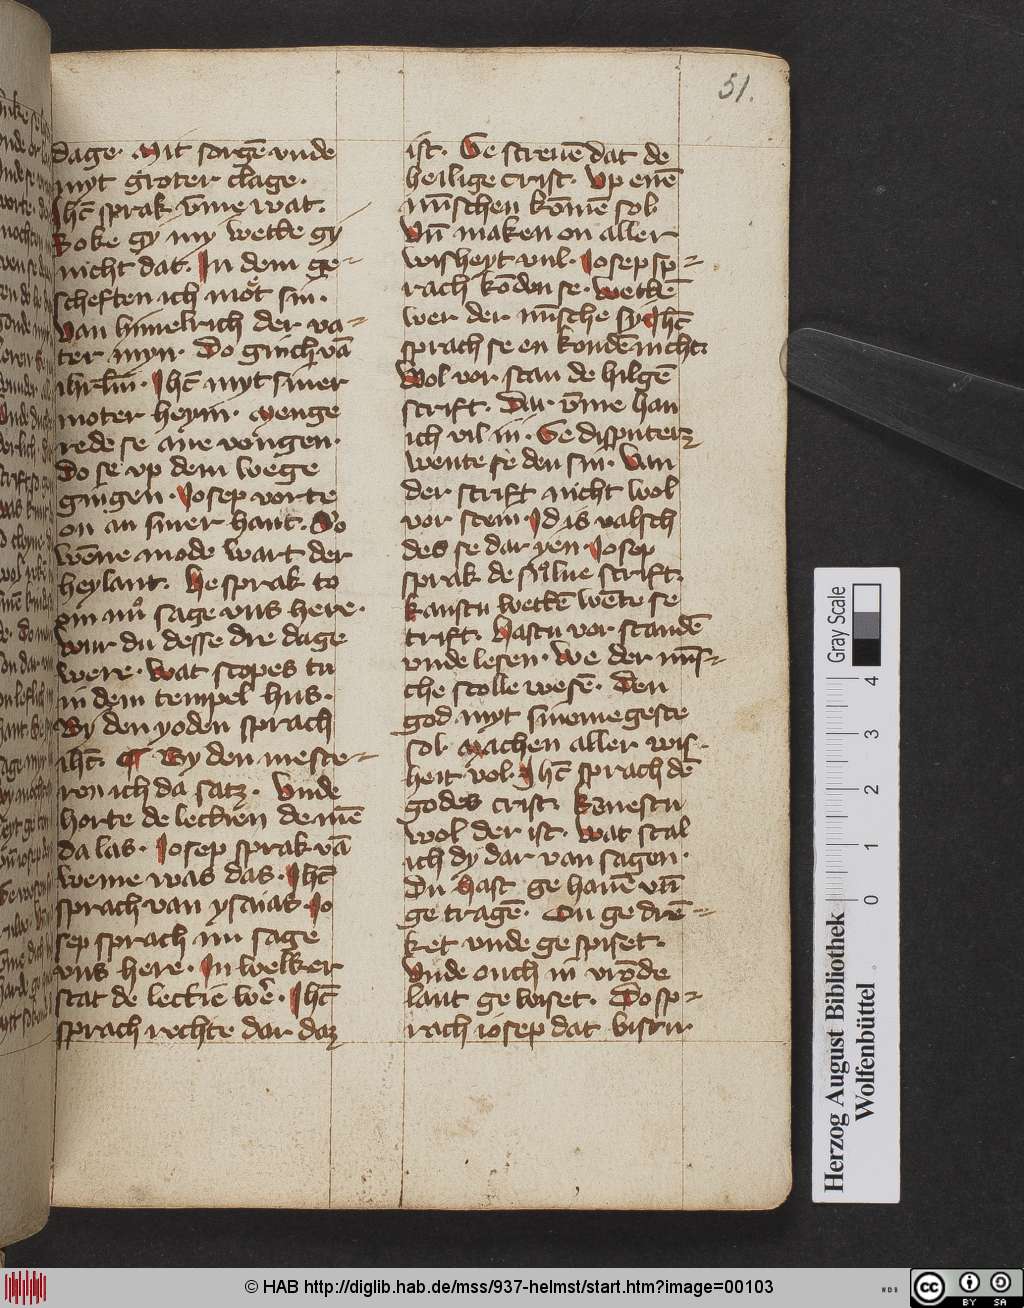 51.
dage. Mit sorgē vnde
myt groter clage.
Ihc̄ sprak v̄me wat.
Soke gy my wetke gy
nicht dat. In dem ge-
scheften ich mot sin.
Van himelrich der va-
ter myn. Do ginch vā
ihrlm̄. Ihc̄ myt siner
moter heym. Menge
rede se ane vongen.
Do se vp dem wege
gingen. Josep vorte
on an siner hant. Do
wēne mode wart der
heylant. He sprak to
om nu sage vns here.
Wur du desse dre dage
were. Wat scopes tu
in dem tempel hus.
By den yoden sprach
ihc̄. ¶ By den meste-
ren ich da satz. Vnde
horte de leckien de mē
da las. Josep sprak vā
weme was das. Ihc̄
sprach van ysaias Jo
sep sprach nu sage
vns here. In welker
stat de leckie wer. Ihc̄
sprach rechte dar daz
ist. Se screuē dat de
heilige crist. Vp enē
mīschen komē sol
Vn̄ maken on aller
wisheyt vul. Josep sp-
rach kōdon se. wetkē
wer der mīsche sy Ihc̄
sprach se en kondē nicht
Wol vor stan de hilgē
scrift. Dar v̄me han
ich vil in. Se disputerz
wente se den sin. Van
der scrift nicht wol
vor stein. Id is valsch
des se dar yen. Josep
sprak de sulue scrift.
kanstu wetkē wēte se
trift. Hastu vor standē
vnde lesen. We der mīs-
che scolle wesē. Den
god myt sineme geste
sol. Machen aller wis-
heit vol. Ihc̄ sprach dē
godes crist. Kanestu
wol der ist. Wat scal
ich dy dar van sagen.
Du hast ge hauē vn̄
ge tragē. On ge drē-
ket vnde ge spiset.
Vnde ouch in vrōde
lant ge wiset. Do sp-
rach iosep dat bistu
Gray Scale
0 1 2 3 4
Herzog August Bibliothek
Wolfenbüttel
© HAB http://diglib.hab.de/mss/937-helmst/start.htm?image=00103
WDB
cc BY SA